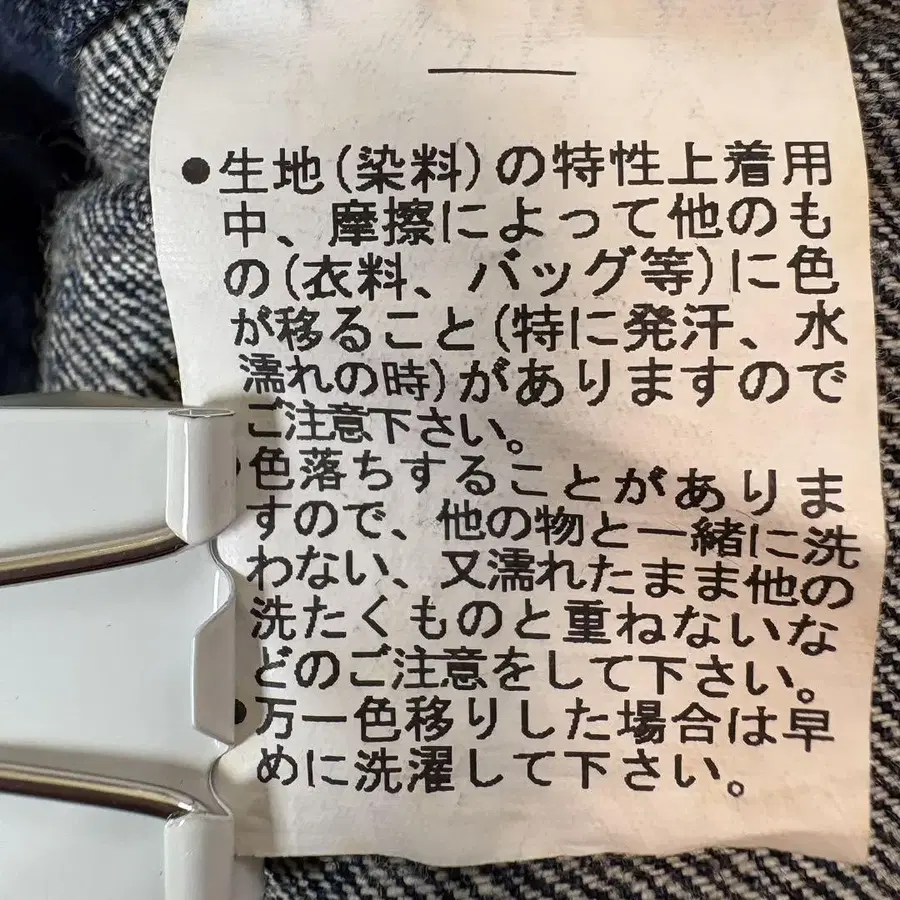 ●生地(染料)の特性上着用
中、摩擦によって他のも
の(衣料、バッグ等)に色
が移ること(特に発汗、水
濡れの時)がありますので
ご注意下さい。
●色落ちすることがありま
すので、他の物と一緒に洗
わない、又濡れたまま他の
洗たくものと重ねないな
どのご注意をして下さい。
●万一色移りした場合は早
めに洗濯して下さい。